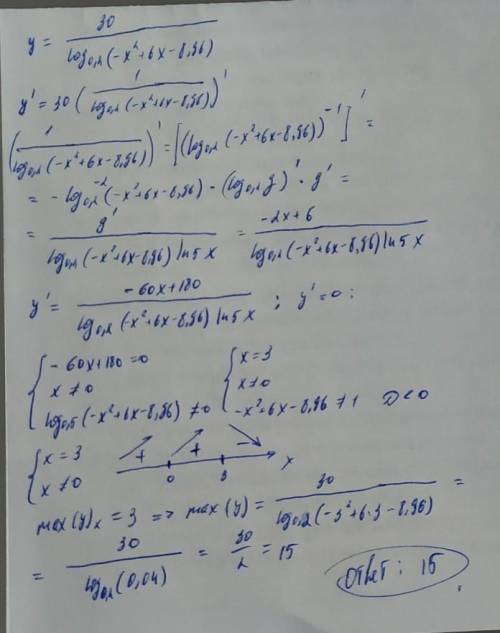 y = 30 / log₀,₂(-x²+6x-8,96)
y' = 30 ( 1 / log₀,₂(-x²+6x-8,96) )'
( 1 / log₀,₂(-x²+6x-8,96) )' = [(log₀,₂(-x²+6x-8,96))⁻¹]' =
= - log₀,₂⁻²(-x²+6x-8,96) · (log₀,₂ g)' · g' =
= g' / log₀,₂(-x²+6x-8,96) ln5 x = -2x+6 / log₀,₂(-x²+6x-8,96) ln5 x
y' = -60x+180 / log₀,₂(-x²+6x-8,96) ln5 x ; y'=0 :
{ -60x+180=0 { x=3
x≠0 x≠0
log₀,₅(-x²+6x-8,96) ≠0 -x²+6x-8,96 ≠1 D<0
{ x=3 + + -
x≠0 0 3 x
max(y)ₓ = 3 => max(y) = 30 / log₀,₂(-3²+6·3-8,96) =
= 30 / log₀,₂(0,04) = 30/2 = 15
Ответ: 15